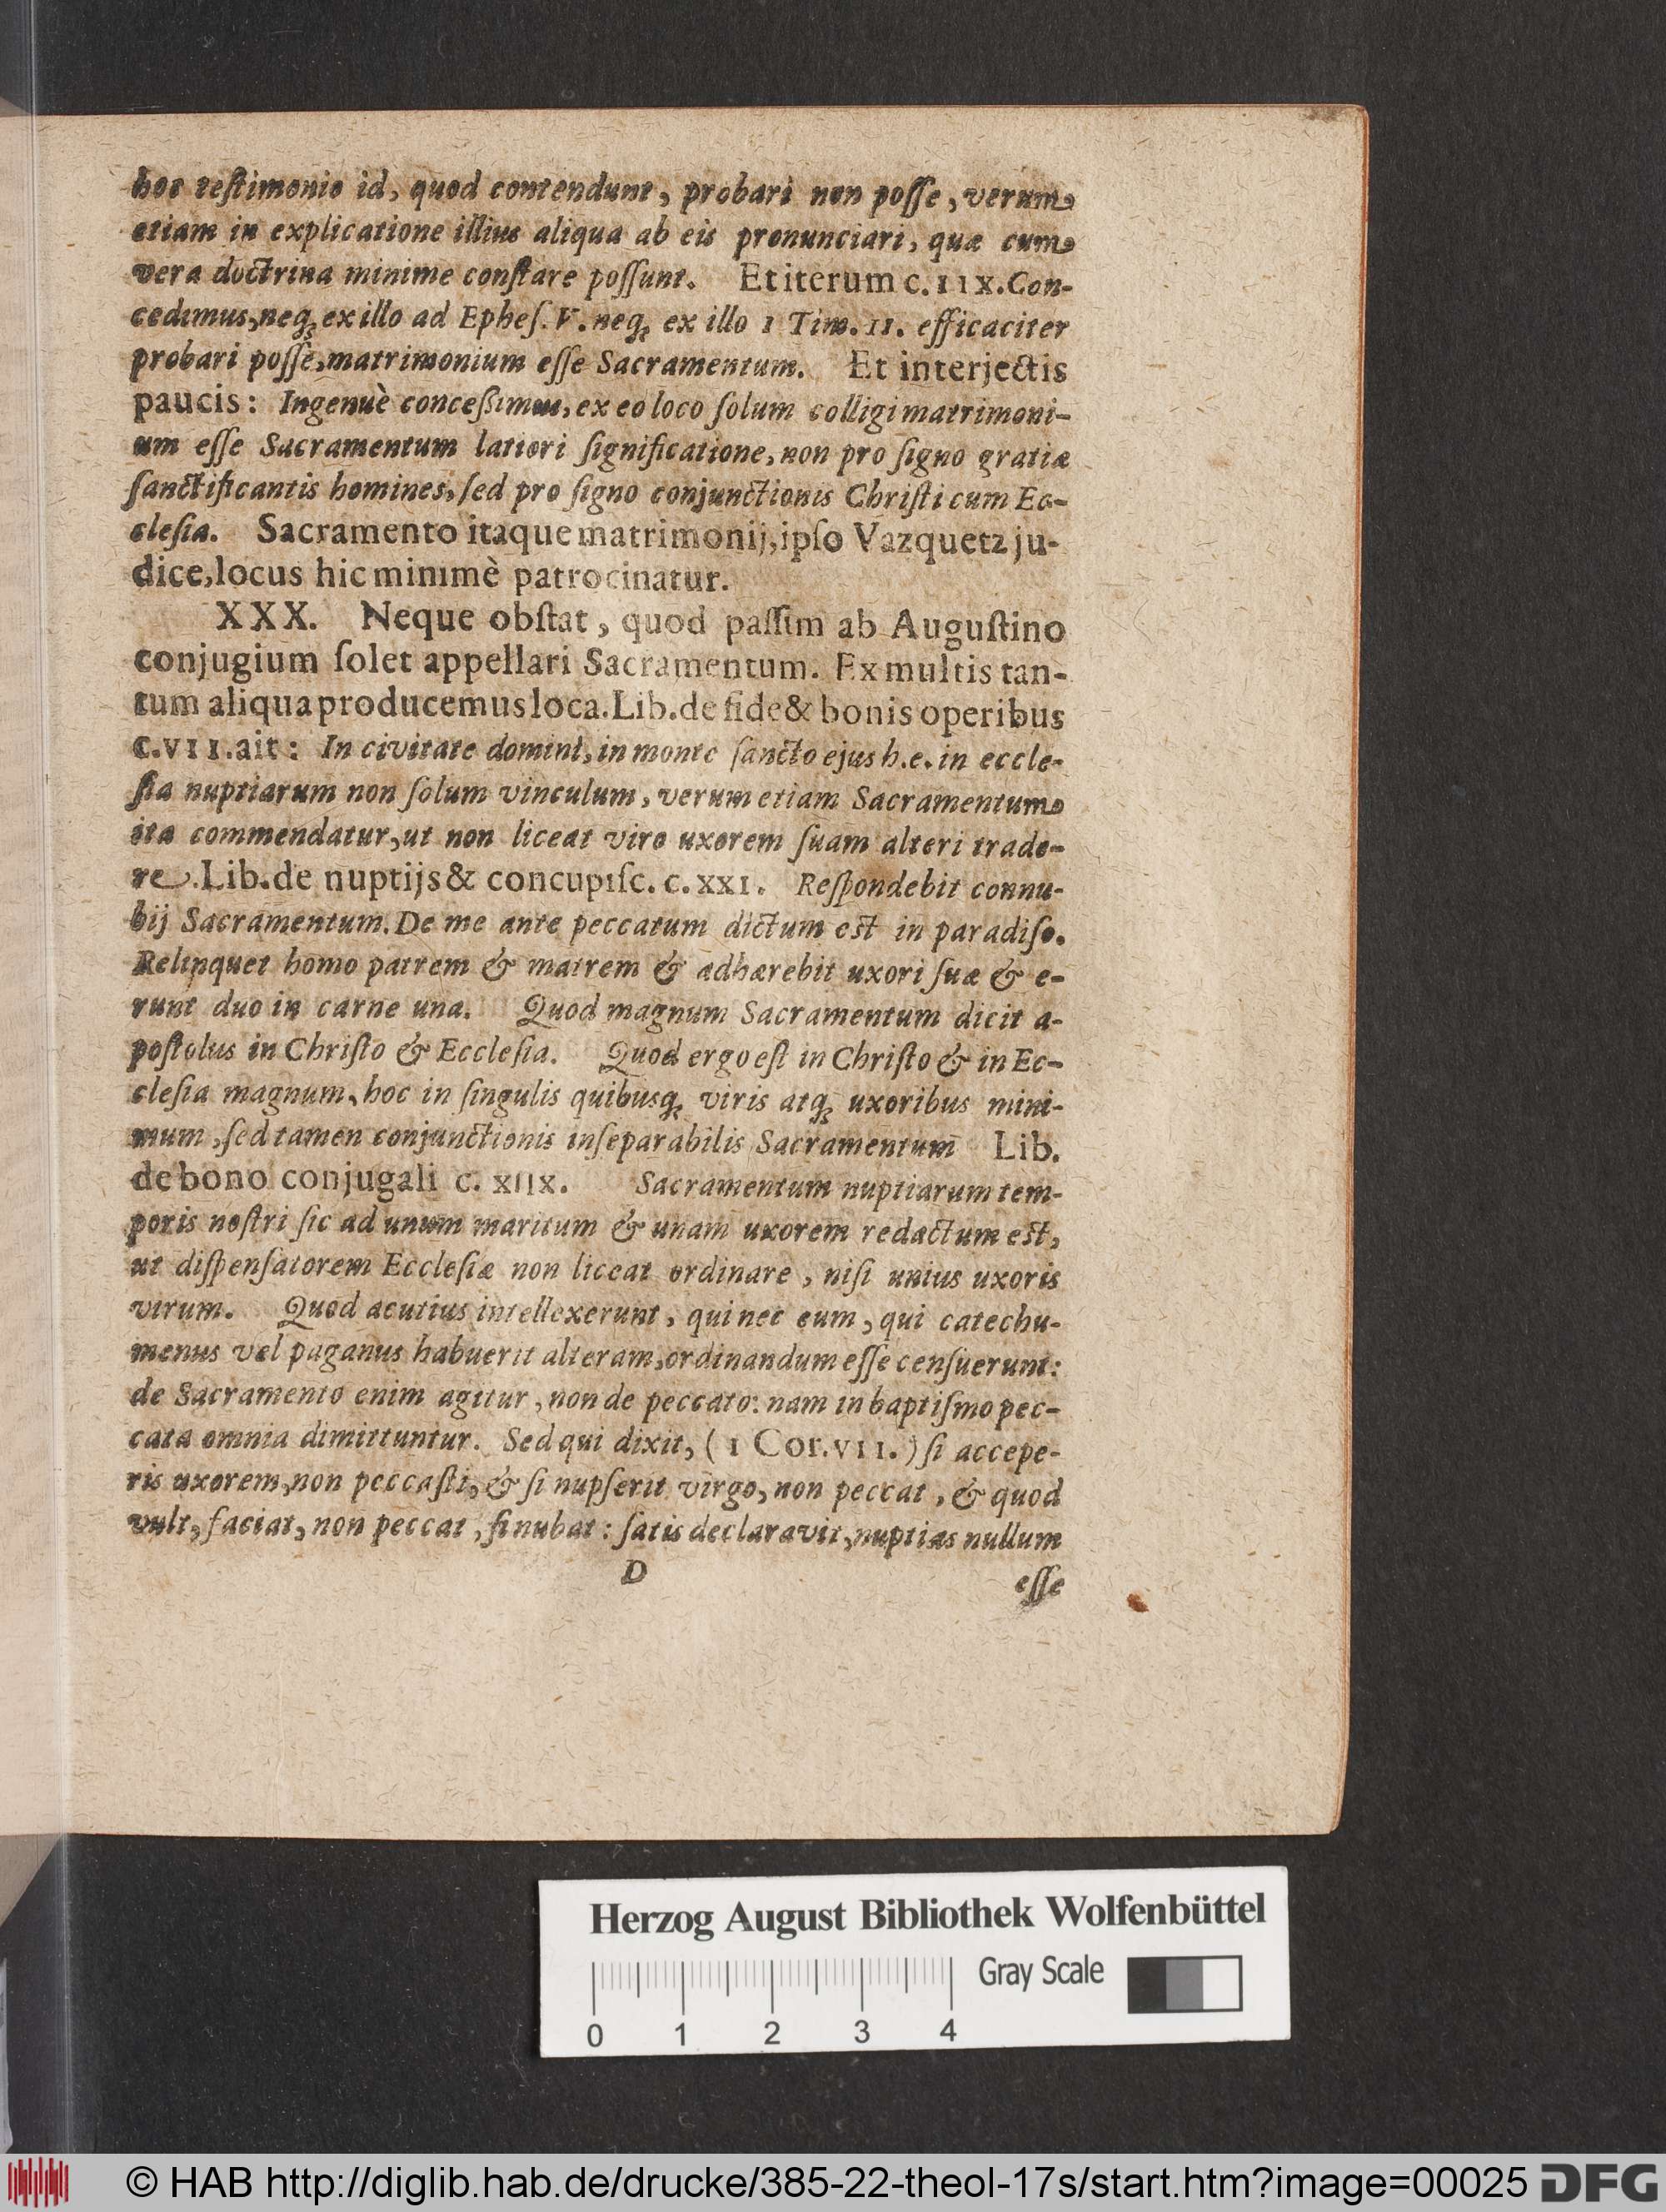 hoc teſtimonio id, quod contendunt, probari non poſſe, verum
etiam in explicatione illius aliqua ab eis pronunciari, quæ cum
vera doctrina minime conſtare poſſunt. Et iterum c. IIX. Con-
cedimus, neq; ex illo ad Epheſ. V. neq; ex illo 1 Tim. II. efficaciter
probari poſſe, matrimonium eſſe Sacramentum. Et interjectis
paucis: Ingenuè conceßimus, ex eo loco ſolum colligi matrimoni-
um eſſe Sacramentum latiori ſignificatione, non pro ſigno gratiæ
ſanctificantis homines, ſed pro ſigno conjunctionis Chriſti cum Ec-
cleſia. Sacramento itaque matrimonij, ipſo Vazquetz ju-
dice, locus hic minimè patrocinatur.
XXX. Neque obſtat, quod paſſim ab Auguſtino
conjugium ſolet appellari Sacramentum. Ex multis tan-
tum aliqua producemus loca. Lib. de fide & bonis operibus
c. VII. ait: In civitate domini, in monte ſancto ejus h. e. in eccle-
ſia nuptiarum non ſolum vinculum, verum etiam Sacramentum
ita commendatur, ut non liceat viro uxorem ſuam alteri trade-
re. Lib. de nuptijs & concupiſc. c. XXI. Reſpondebit connu-
bij Sacramentum. De me ante peccatum dictum est in paradiſo.
Relinquet homo patrem & matrem & adhærebit uxori ſuæ & e-
runt duo in carne una. Quod magnum Sacramentum dicit a-
poſtolus in Chriſto & Eccleſia. Quod ergo eſt in Chriſto & in Ec-
cleſia magnum, hoc in ſingulis quibusq; viris atq; uxoribus mini-
mum, ſed tamen conjunctionis inſeparabilis Sacramentum Lib.
de bono conjugali c. XIIX. Sacramentum nuptiarum tem-
poris noſtri ſic ad unum maritum & unam uxorem redactum est,
ut diſpenſatorem Eccleſiæ non liceat ordinare, niſi unius uxoris
virum. Quod acutius intellexerunt, qui nec eum, qui catechu-
menus vel paganus habuerit alteram, ordinandum eſſe cenſuerunt:
de Sacramento enim agitur, non de peccato: nam in baptiſmo pec-
cata omnia dimittuntur. Sed qui dixit, (1 Cor. VII.) ſi accepe-
ris uxorem, non peccaſti, & ſi nupſerit virgo, non peccat, & quod
vult, faciat, non peccat, ſi nubat: ſatis declaravit, nuptias nullum
D
eſſe
Herzog August Bibliothek Wolfenbüttel
Gray Scale
0 1 2 3 4
© HAB http://diglib.hab.de/drucke/385-22-theol-17s/start.htm?image=00025 DFG